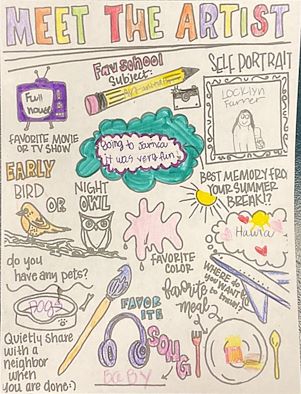 MEET THE ARTIST
Fav school
Subject:
SELF PORTRAIT
Full
house
FAVORITE MOVIE
OR TV SHOW
Going to Jamica
it was very fun
EARLY
BIRD
OR
NIGHT
OWL
BEST MEMORY FROM
YOUR SUMMER
BREAK!?
do you
have any pets?
FAVORITE
COLOR
WHERE DO
YOU WANT
to travel?
Dogs
favorite
meal
Quietly share
with a
neighbor
when
you are done:)
FAVOR
ITE
SONG
BABY